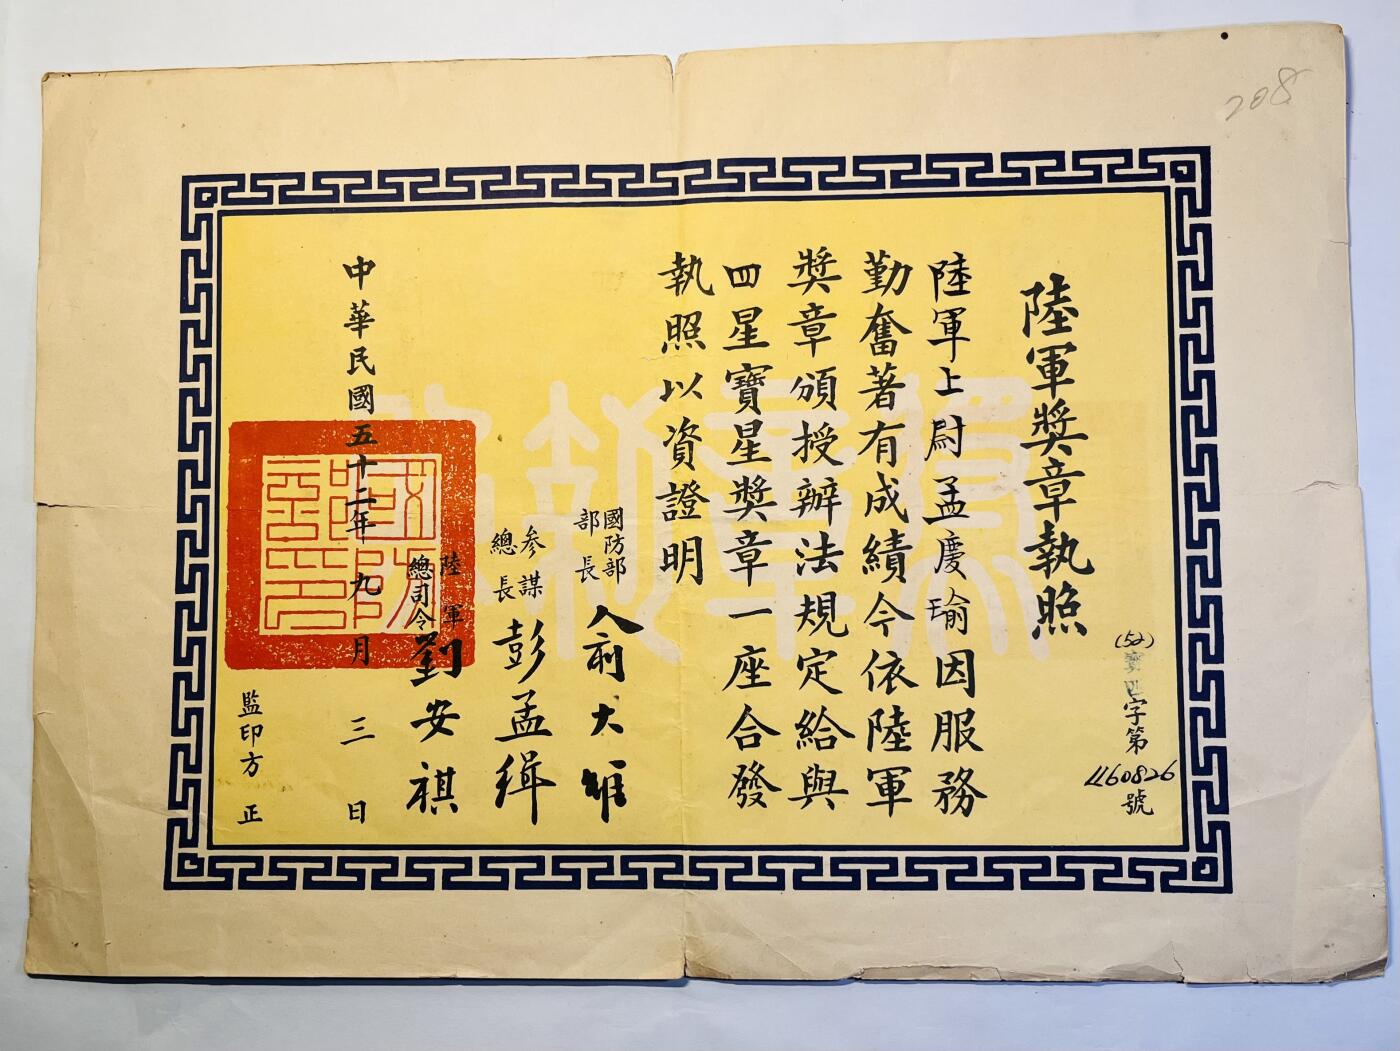 208
陸軍獎章執照
(52)寶四字第1160826號
陸軍上尉孟慶瑜因服務
勤奮著有成績今依陸軍
獎章頒授辦法規定給與
四星寶星獎章一座合發
執照以資證明
國防部
部長
俞大維
參謀
總長
彭孟緝
陸軍
總司令
劉安祺
中華民國五十二年九月三日
監印方正